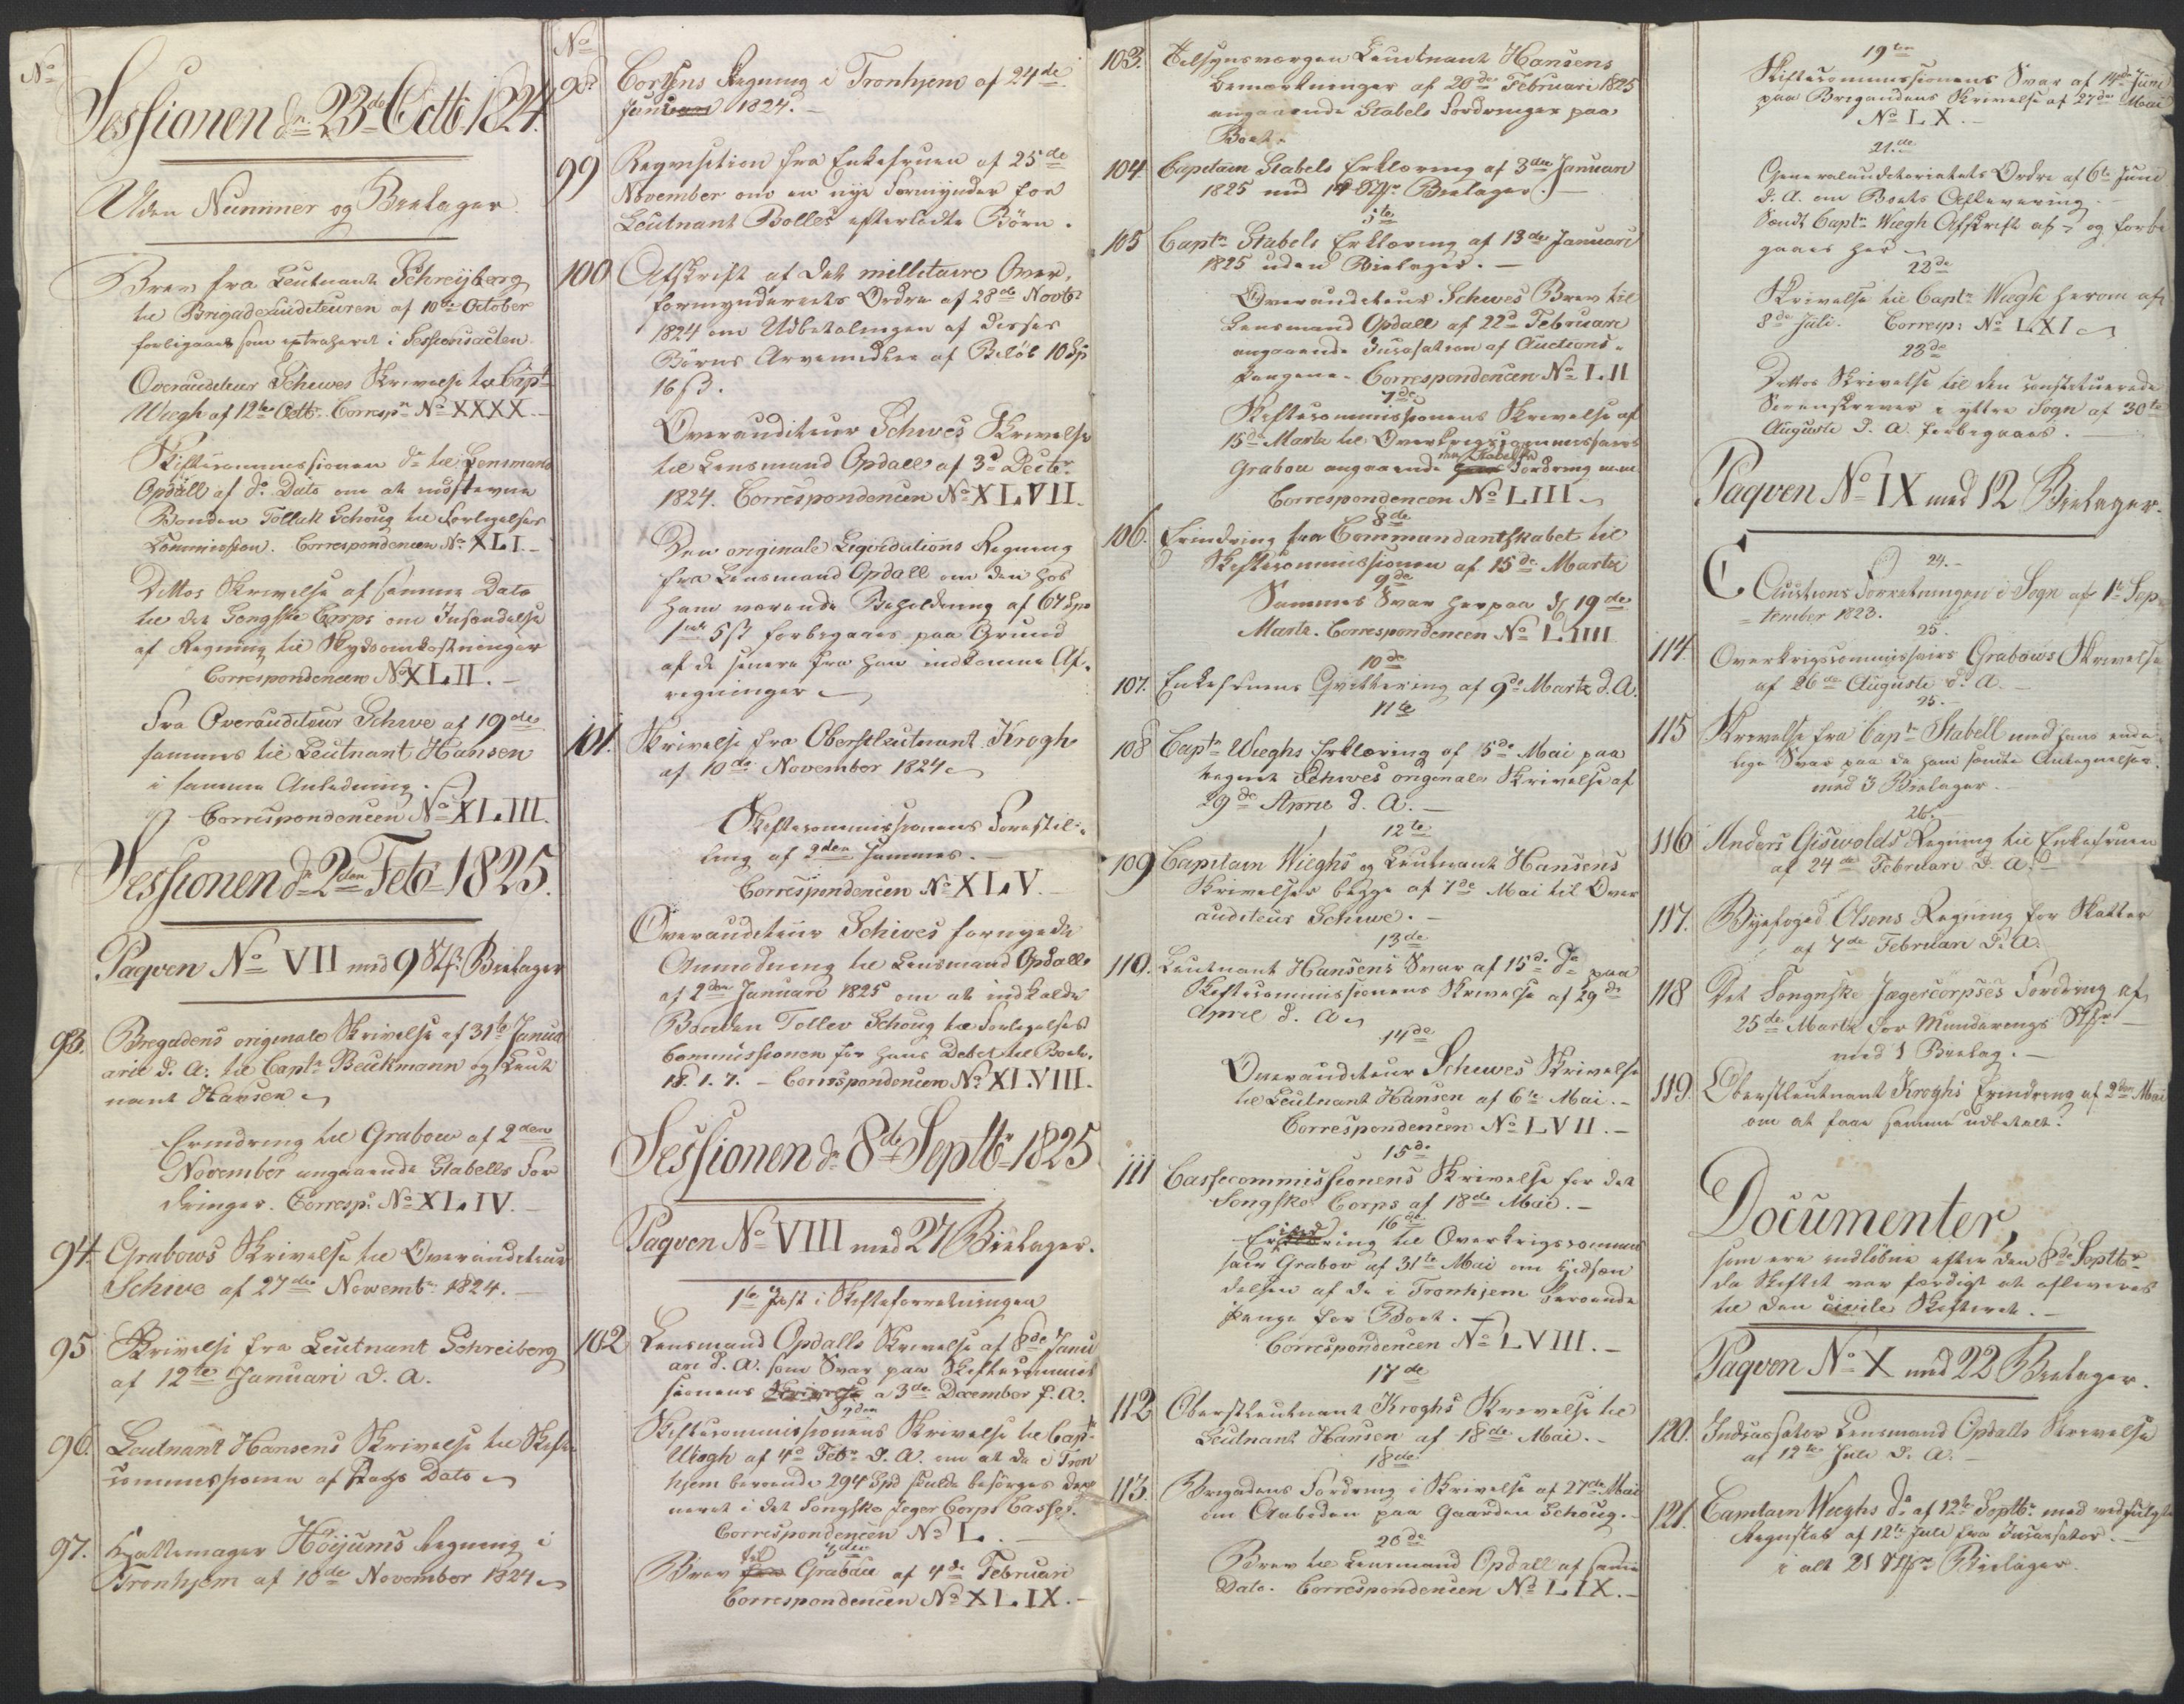 No
Sessionen dn 23de Octb 1824.
Uden Nummer og Bielager
Brev fra Leutnant Schreyberg
til Brigadeauditeuren af 10de October
forligaaet som extraheret i Sessionsacten.
Overauditeur Schiwes Skrivelse til Capt
Wiegh af 12te Octb. Corresp.n No XXXX.
Skiftecommissionen do til Lensmand
Opdall af do Dato om at indstevne
Bonden Tollak Schoug til Forligelses
Commission. Correspondencen No XLI.
Dittos Skrivelse af samme Dato
til det Songske Corps om Indsendelse
af Regning til Skydsomkostninger
Correspondencen No XLII.
Fra Overauditeur Schive af 19de
sammes til Leutnant Hansen
i samme Anledning.
Correspondencen No XLIII.
Sessionen dn 2den Feb 1825.
Paqven No VII med 9 Stk. Bielager
93. Bregadens originale Skrivelse af 31te Janu
arii d. A. til Captn Beichmann og Leut
nant Hansen
Erindring til Grabow af 2den
November angaaende Stabells For
dringer. Corresp: No XLIV.
94. Grabows Skrivelse til Overauditeur
Schive af 27de Novembr 1824.
95 Skrivelse fra Leutnant Schreiberg
af 12te Januari d. A.
96. Leutnant Hansens Skrivelse til Skifte
commissionen af Dato
97. Hattemager Höijums Regning i
Tronhjem af 10de November 1824
No
98 Regning i Tronhjem af 24de
Januari 1824.
99 Reqvisition fra Enkefruen af 25de
November om en nye Formynder for
Leutnant Bolles efterladte Börn.
100 Afskrift af det millitaire Over,
formynderiets Ordre af 28de Novbr
1824 om Udbetalingen af disses
Börns Arvemidler af Belöb 10 Sp
16 ß.
Overauditeur Schives Skrivelse
til Lensmand Opdall af 3d Decbr
1824. Correspondencen No XLVII.
Den originale Liqvidations Regning
fra Lensmand Opdall om den hos
ham værende Beholdning af 67 Spd
1 ort 5 ß forbigaaes paa Grund
af de senere fra ham indkomne Af,
regninger
101. Skrivelse fra Oberstleutnant Krogh
af 10de November 1824
Skiftecommissionens Forestil-
ling af 2den sammes.
Correspondencen No XLV.
Overauditeur Schives fornyede
Anmodning til Lensmand Opdall
af 2den Januari 1825 om at indkalde
Bonden Tollev Schoug til Forligelses
Commissionen for hans Debet til Boet.
18. 1. 7. – Correspondencen No XLVIII.
Sessionen dn 8de Septbr 1825
Paqven No VIII med 27 Bielager.
1te Post i Skifteforretningen
102 Lensmand Opdalls Skrivelse af 8de Janu
ari d. A. som Svar paa Skiftecommis
sionens Skrivelse a 3de December f. A.
2den
Skiftecommissionens Skrivelse til Capt
Wiegh af 4de Febr d. A. om at de i Tron
hjem beroende 294 Spd skulde besörges depo
neret i det Songske Jeger Corps Casse.
Correspondencen No L.
3den
Brev til Grabau af 4de Februari
Correspondencen No XLIX.
103. Tilsynsværgen Leutnant Hansens
Bemærkninger af 20de Februari 1825
angaaende Stabels Fordringer paa
Boet.
104. Capitain Stabels Erklæring af 3die Januari
1825 med 14 Stkr Bielager.
5te
105 Captn Stabels Erklæring af 13de Januari
1825 uden Bielager.
Overauditeur Schives Brev til
Lensmand Opdall af 22d Februari
angaaende Incassation af Auctions-
pengene. Correspondencen No LII
7de
Skiftecommissionens Skrivelse af
15de Martz til Overkrigscommissaire
Grabou angaaende Stabells Fordring m.m.
Correspondencen No LIII
8de
106. Erindring fra Commandantskabet til
Skiftecommissionen af 15de Martz
9de
Sammes Svar herpaa af 19de
Martz. Correspondencen No LIIII
10de
107. Enkefruens Qvittering af 9de Martz d. A.
11te
108 Captn Wieghs Erklæring af 5de Mai paa
Schives originale Skrivelse af
29de April d. A.
12te
109 Capitain Wieghs og Leutnant Hansens
Skrivelser begge af 7de Mai til Over
auditeur Schive.
13de
110. Leutnant Hansens Svar af 15de do paa
Skiftecommissionens Skrivelse af 29de
April d. A.
14de
Overauditeur Schiwes Skrivelse
til Leutnant Hansen af 6te Mai.
Correspondencen No LVII.
15de
111 Cassecommissionens Skrivelse for det
Songske Corps af 18de Mai.
16de
Erindring til Overkrigscommis
sair Grabow af 31te Mai om Hidsen
delsen af de i Tronhjem beroende
Penge for Boet.
Correspondencen No LVIII.
17de
112 Oberstleutnant Kroghs Skrivelse til
Leutnant Hansen af 18de Mai.
18de
113. Brigadens Fordring i Skrivelse af 27de Mai
om Aaboden paa Gaarden Schoug.
20de
Brev til Lensmand Opdall af samme
Dato. Correspondencen No LIX.
19ten
Skiftecommissionens Svar af 14de Juni
paa Bregadens Skrivelse af 27de Mai
No LX.
21de
Generalauditoriatets Ordre af 6te Juni
d. A. om Boets Aflevering.
Sendt Captn Wiegh Afskrift af og forbi
gaaes her
22de
Skrivelse til Captn Wiegh herom af
8de Juli. Corresp: No LXI
23de
Dittos Skrivelse til den constituerede
Sorenskriver i yttre Sogn af 30te
Augusti d. A. forbigaaes.
Paqven No IX med 12 Bielager.
24.
Auctions Forretningen i Sogn af 1te Sep-
tember 1823.
25.
114. Overkrigscommissairs Grabows Skrivelse
af 26de Augusti d. A.
25.
115 Skrivelse fra Captn Stabell med hans ende-
lige Svar paa de ham sendte Antegnelser.
med 3 Bielager.
26.
116 Anders Giswolds Regning til Enkefruen
af 24de Februari d. A.
117. Byefoged Olsens Regning for Skatter
af 7de Februari d. A.
118 Det Songnske Jægercorpses Fordring af
25de Martz for Munderings Stkr
med 1 Bielag.
119. Oberstleutnant Kroghs Erindring af 2den Mai
om at faae samme udbetalt.
Documenter,
som ere indlöbne efter den 8de Septbr
da Skiftet var færdigt at afleveres
til den civile Skifteret.
Paqven No X med 22 Bielager.
120. Incassator Lensmand Opdalls Skrivelse
af 12te Juli d. A.
121. Capitain Wieghs do af 12te Septbr med vedfulgte
Regnskab af 12te Juli fra Incassator.
i alt 21 Stkr Bielager.